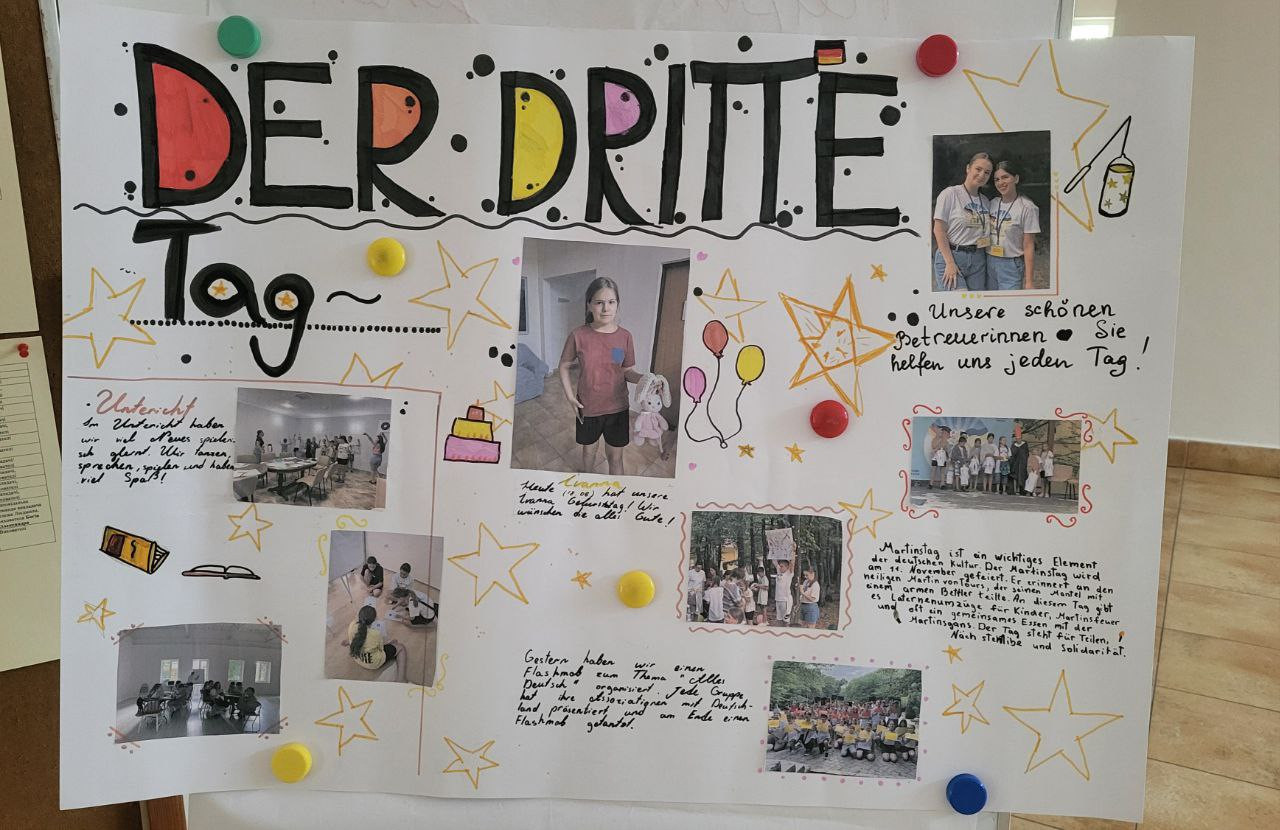 DER DRITTE
Tag~
Unsere schönen
Betreuerinnen Sie
helfen uns jeden Tag!
Unterricht
Im Unterricht haben
wir viel Neues spielen
sch glernt. Wir tanzen,
sprechen, spielen und haben
viel Spaß!
Ivanna
Heute (18.06) hat unsere
Ivanna Geburtstag! Wir
wünschen die alles Gute!
Martinstag ist ein wichtiges Element
der deutschen Kultur. Der Martinstag wird
am 11. November gefeiert. Er erinnert an den
heiligen Martin von Tours, der seinen Mantel mit
einem armen Bettler teilte. An diesem Tag gibt
es Laternenumzüge für Kinder, Martinsfeuer
und oft ein gemeinsames Essen mit der
Martinsgans. Der Tag steht für Teilen,
Nächstenliebe und Solidarität.
Gestern haben wir einen
Flashmob zum Thema "Alles
Deutsch" organisiert. Jede Gruppe
hat ihre Assoziationen mit Deutsch-
land präsentiert und am Ende einen
Flashmob getanzt.